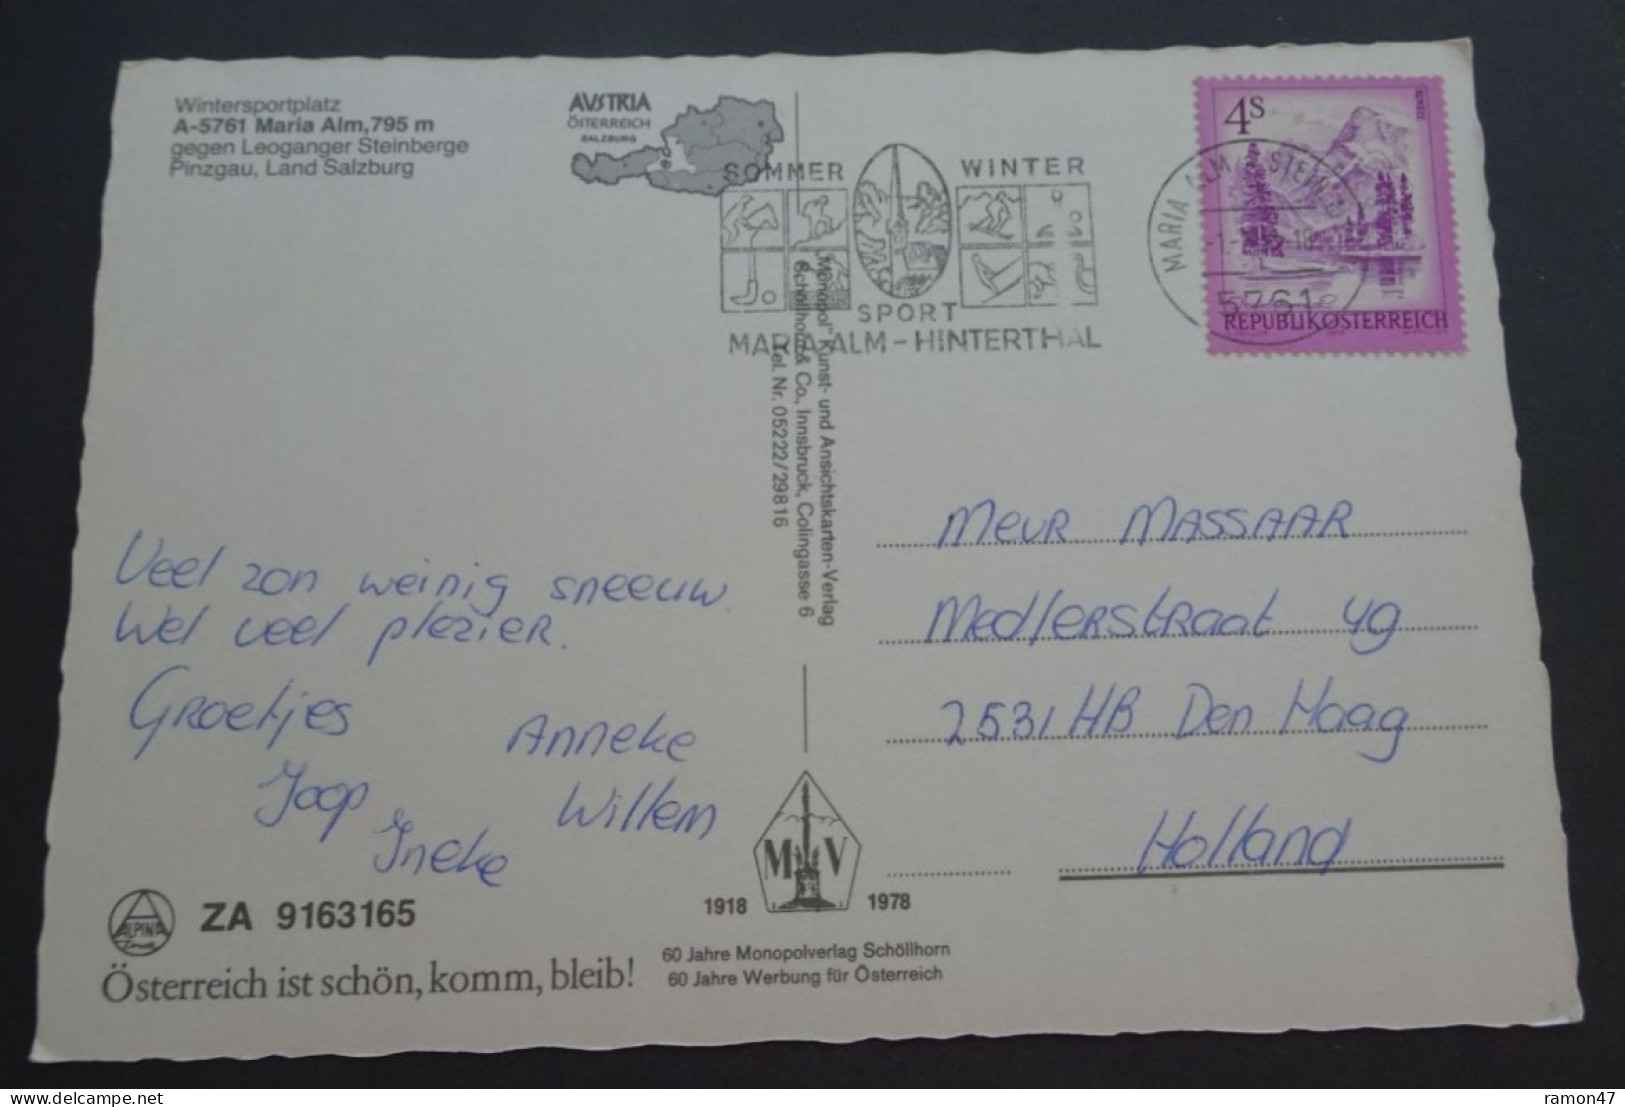 Wintersportplatz
A-5761 Maria Alm, 795 m
gegen Leoganger Steinberge
Pinzgau, Land Salzburg
AVSTRIA
ÖSTERREICH
SALZBURG
SOMMER
WINTER
SPORT
MARIA ALM - HINTERTHAL
MARIA ALM
5761
4S
REPUBLIK ÖSTERREICH
„Monopol" Kunst- und Ansichtskarten-Verlag
Schöllhorn & Co., Innsbruck, Colingasse 6
Tel. Nr. 05222/29816
Veel zon weinig sneeuw.
Wel veel plezier.
Groetjes
Anneke
Joop
Willem
Ineke
Meur Massaar
Medlerstraat 49
2531 HB Den Haag
Holland
M V
1918 1978
60 Jahre Monopolverlag Schöllhorn
60 Jahre Werbung für Österreich
ALPINA
ZA 9163165
Österreich ist schön, komm, bleib!
delcampe.net
ramon47